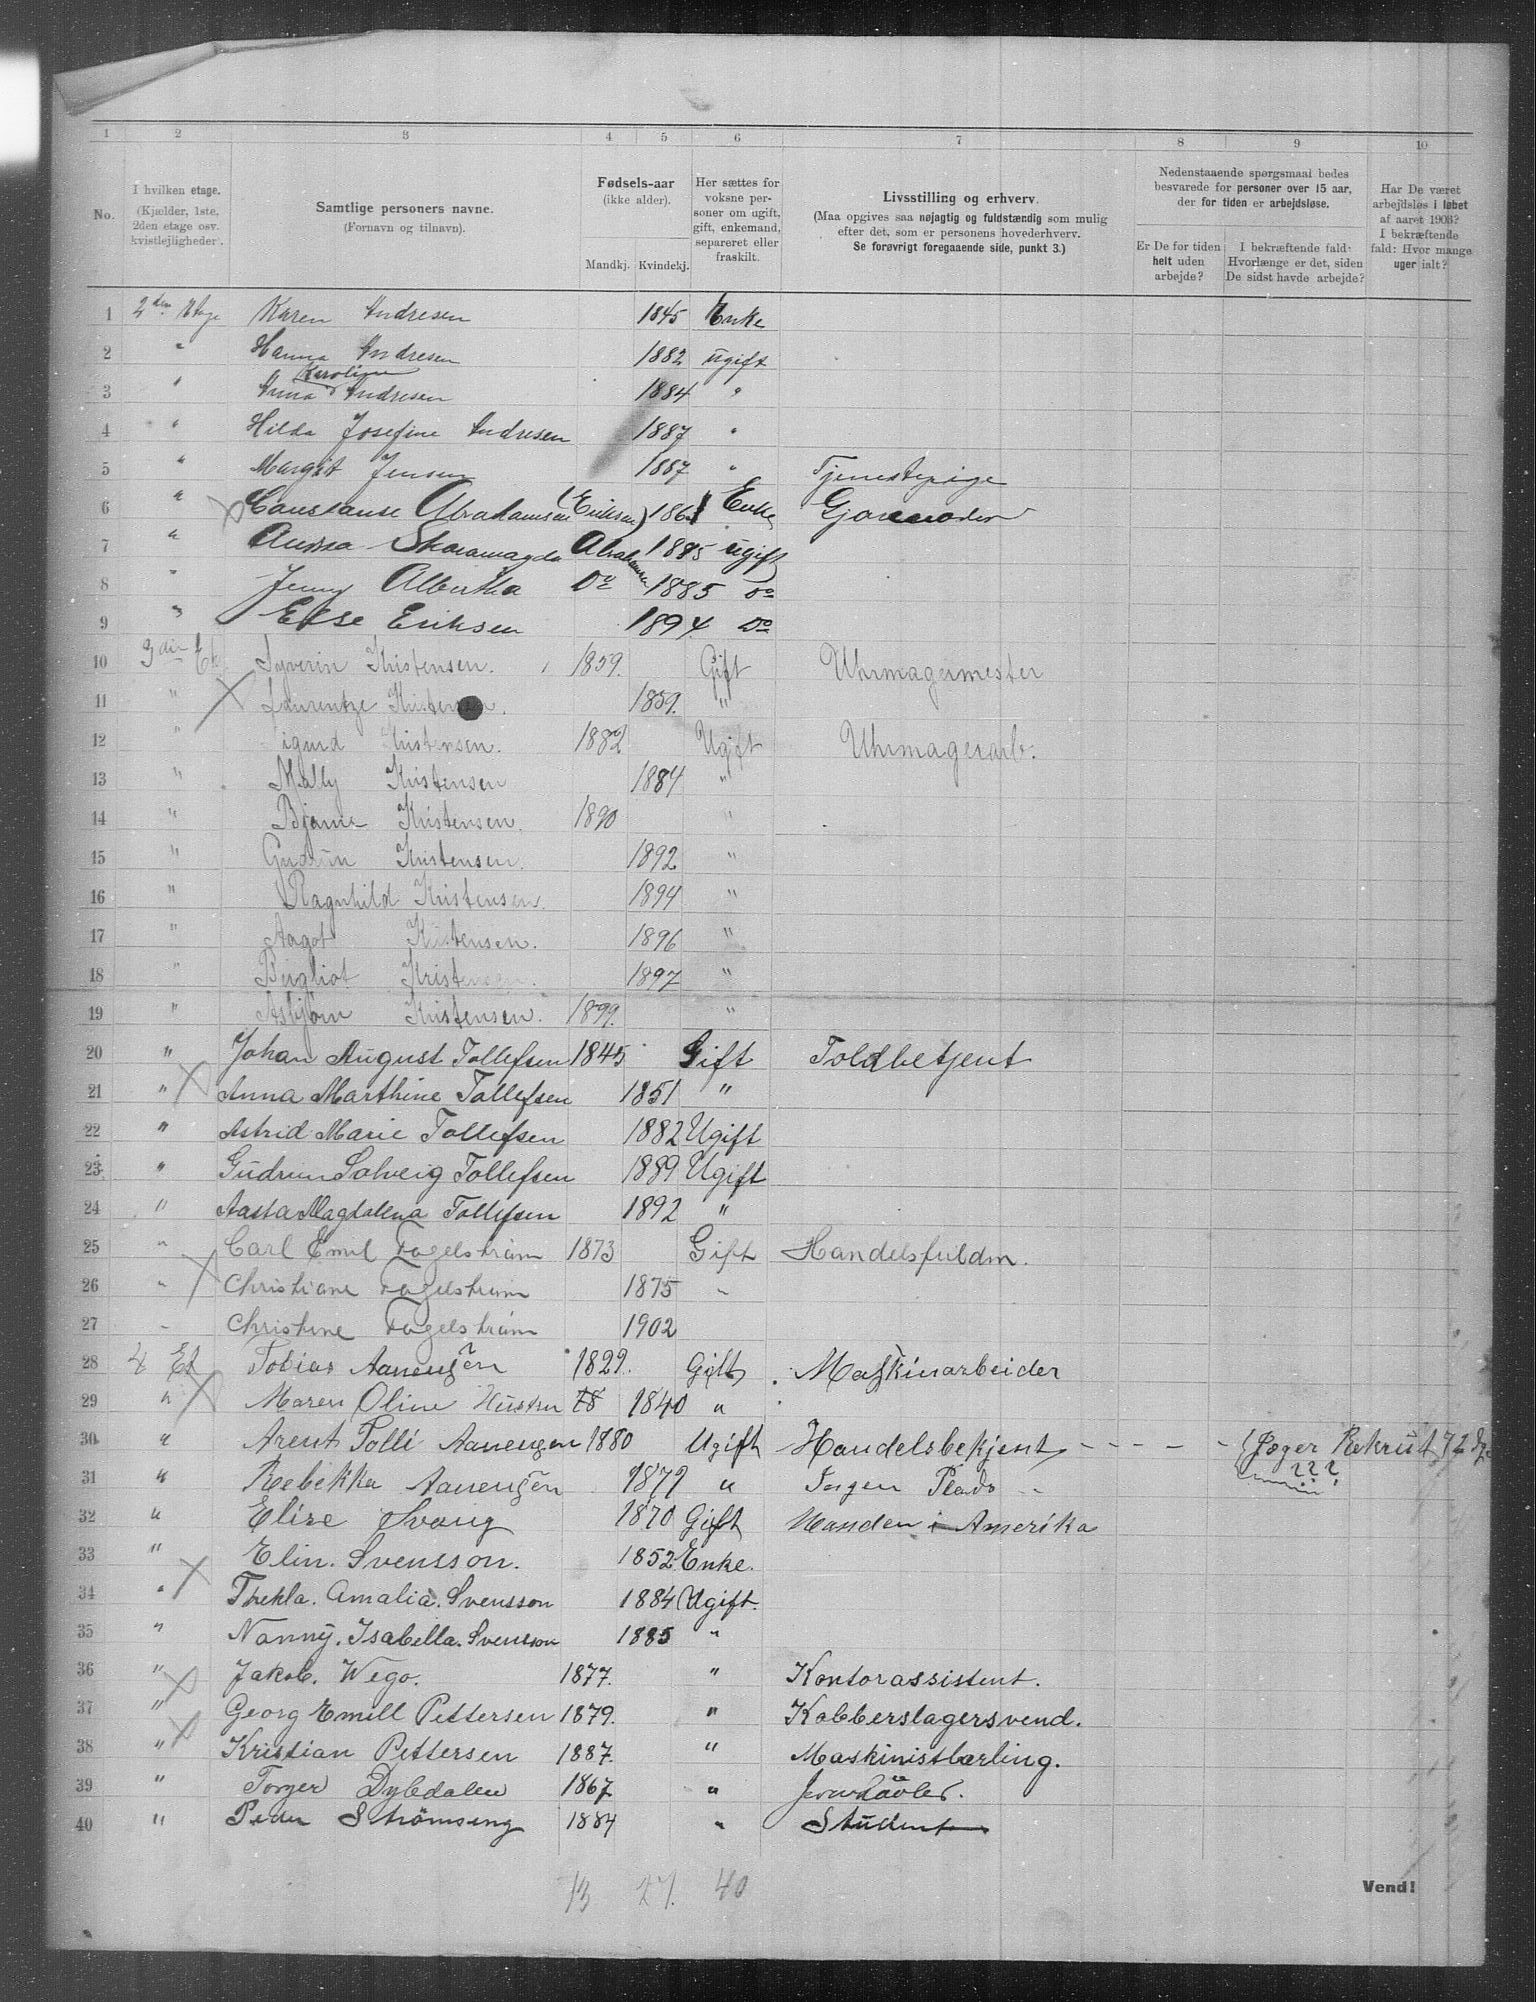 1 2 3 4 5 6 7 8 9 10
No. I hvilken etage. (Kjælder, 1ste, 2den etage osv. kvistlejligheder.) Samtlige personers navne. (Fornavn og tilnavn). Fødsels-aar (ikke alder). Mandkj. Kvindekj. Her sættes for voksne personer om ugift, gift, enkemand, separeret eller fraskilt. Livsstilling og erhverv. (Maa opgives saa nøjagtig og fuldstændig som mulig efter det, som er personens hovederhverv. Se forøvrigt foregaaende side, punkt 3.) Nedenstaaende spørgsmaal bedes besvarede for personer over 15 aar, der for tiden er arbejdsløse. Er De for tiden helt uden arbejde? I bekræftende fald: Hvorlænge er det, siden De sidst havde arbejde? Har De været arbejdsløs i løbet af aaret 1903? I bekræftende fald: Hvor mange uger ialt?
1 2den Etage Karen Andresen 1845 Enke
2 " Hanna Andresen 1882 ugift
Karoline
3 " Anna Andresen 1884 "
4 " Hilda Josefine Andresen 1887 "
5 " Margit Jensen 1887 " Tjenestepige
6 " Constanse Abrahamsen (Eriksen) 186 Enke
7 " Anna Abrahamsen 1885 ugift
8 " Jenny Albertha Do 1885 Do
9 " Else Eriksen 1894 Do
10 3die Et Syverin Kristensen. 1859. Gift Uhrmagermester
11 " Laurentze Kristensen. 1859. "
12 " Sigurd Kristensen. 1882 Ugift Uhrmagerarb.
13 " Mally Kristensen 1884 "
14 " Bjarne Kristensen. 1890 "
15 " Gudrun Kristensen. 1892 "
16 " Ragnhild Kristensen. 1894 "
17 " Aagot Kristensen. 1896 "
18 " Bergliot Kristensen. 1897 "
19 " Asbjørn Kristensen. 1899. "
20 " Johan August Tollefsen 1845 Gift Toldbetjent
21 " Anna Marthine Tollefsen 1851 "
22 " Astrid Marie Tollefsen 1882 Ugift
23 " Gudrun Solveig Tollefsen 1889 Ugift
24 " Aasta Magdalena Tollefsen 1892 "
25 " Carl Emil Fagelstrøm 1873 Gift Handelsfuldm.
26 " Christiane Fagelstrøm 1875 "
27 " Christine Fagelstrøm 1902
28 4 Et Tobias Aanensen 1829. Gift Maskinarbeider
29 " Maren Oline Hustru 18 1840 "
30 " Arent Tolli Aanensen 1880 Ugift Handelsbetjent - - - - - (Jæger Rekrut 72
31 " Rebekka Aanensen 1877 " ???
32 " Elise Svang 1870 Gift Manden i Amerika
33 " Elin. Svensson. 1852 Enke.
34 " Thekla. Amalia. Svensson 1884 Ugift.
35 " Nanny. Isabella. Svensson 1885 "
36 " Jakob. Wego. 1877. " Kontorassistent.
37 " Georg Emill Pettersen 1879. " Kobberslagersvend.
38 " Kristian Pettersen 1887. " Maskinistlærling.
39 " Torger Dybdalen 1867 "
40 " Peder Strömseng 1884 " Student
13 27. 40
Vend!